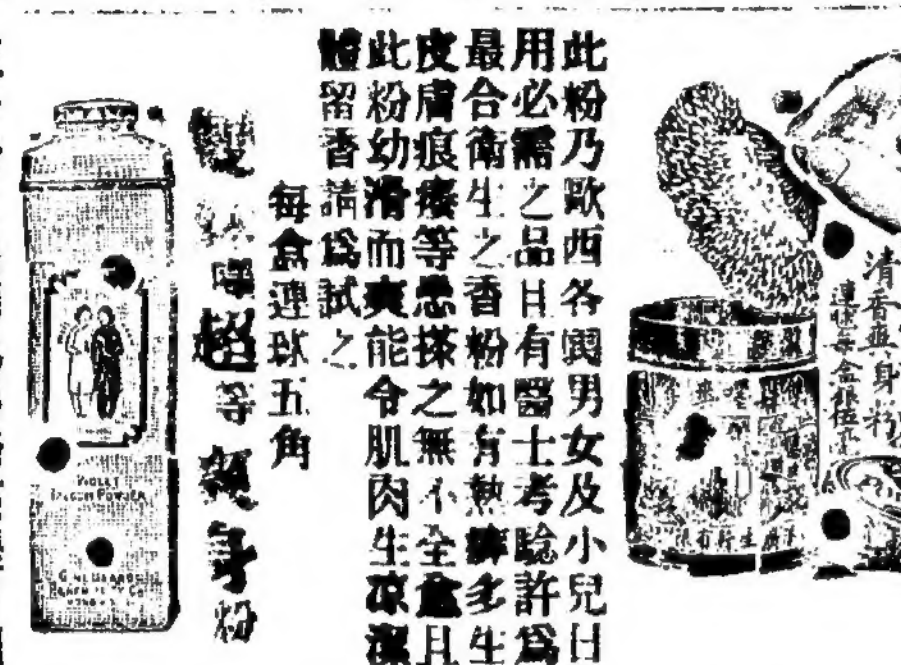 清香爽身粉
此粉乃歐西各國男女及小兒日
用必需之品且有醫士考驗許爲
最合衛生之香粉如有熱痱多生
皮膚痕癢等患搽之無不全愈且
此粉幼滑而爽能令肌肉生凉潔
體留香請爲試之
每盒連球五角
嘜超等爽身粉
VIOLET
TALCUM POWDER